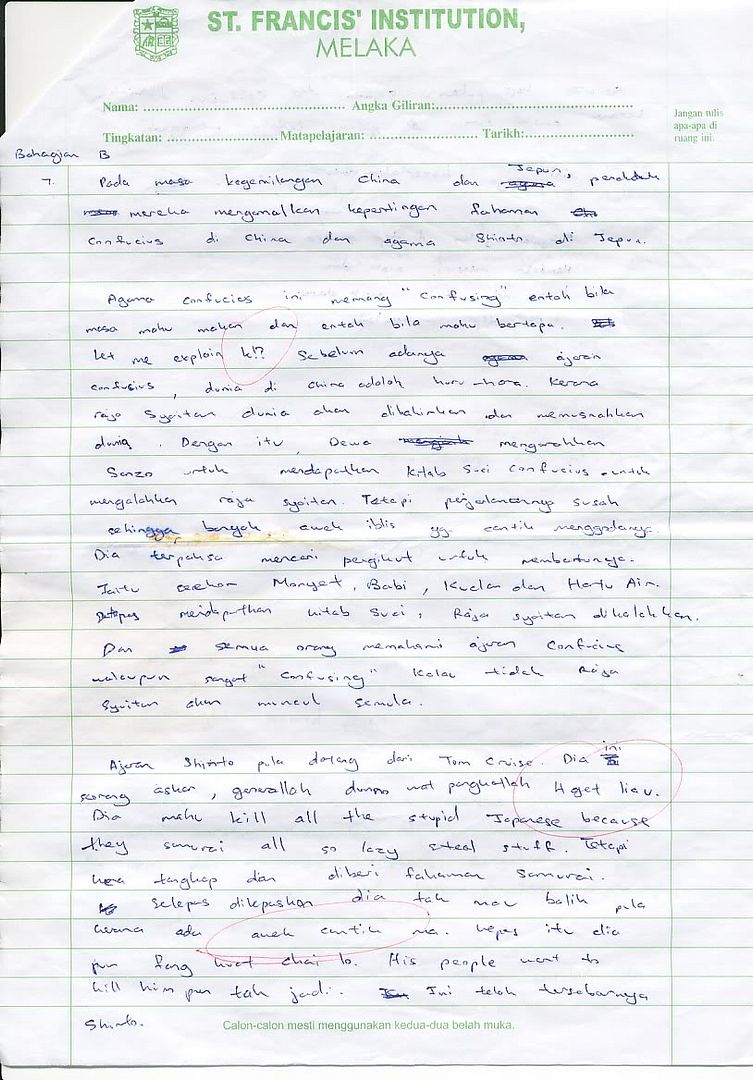 ST. FRANCIS' INSTITUTION,
MELAKA
Nama: ........................ Angka Giliran:........................
Jangan tulis
apa-apa di
ruang ini.
Tingkatan: ........................ Matapelajaran: ........................ Tarikh:........................
Bahagian B
7. Pada masa kegemilangan China dan Jepun, penduduk
mereka mengamalkan kepentingan fahaman
Confucius di China dan agama Shinto di Jepun.
Agama confucies ini memang "Confusing" entah bila
masa mahu makan dan entah bila mahu bertapa.
Let me explain k!? Sebelum adanya ajaran
confusius, dunia di china adalah huru-hara. Kerana
raja Syaitan dunia akan dilahirkan dan memusnahkan
dunia. Dengan itu, Dewa mengarahkan
Sanzo untuk mendapatkan kitab Suci Confucius untuk
mengalahkan raja syaitan. Tetapi perjalanannya susah
sehingga banyak awek iblis yg cantik menggodanya.
Dia terpaksa mencari pengikut untuk membantunya.
Iaitu seekor Monyet, Babi, Kuda dan Hantu Air.
mendapatkan kitab suci, Raja syaitan dikalahkan.
Dan semua orang memahami ajaran Confucius
walaupun sangat "Confusing" Kalau tidak Raja
Syaitan akan muncul semula.
Ajaran Shinto pula datang dari Tom Cruise. Dia ini
seorang askar, generallah dunno wat pangkatlah 4get liau.
Dia mahu kill all the stupid Japanese because
they samurai all so lazy steal stuff. Tetapi
kena tangkap dan diberi fahaman Samurai.
Selepas dilepaskan dia tak mau balik pula
kerana ada awek cantik ma. Lepas itu dia
pun fang huat chai lo. His people want to
kill him pun tak jadi. Ini telah tersebarnya
Shinto.
Calon-calon mesti menggunakan kedua-dua belah muka.